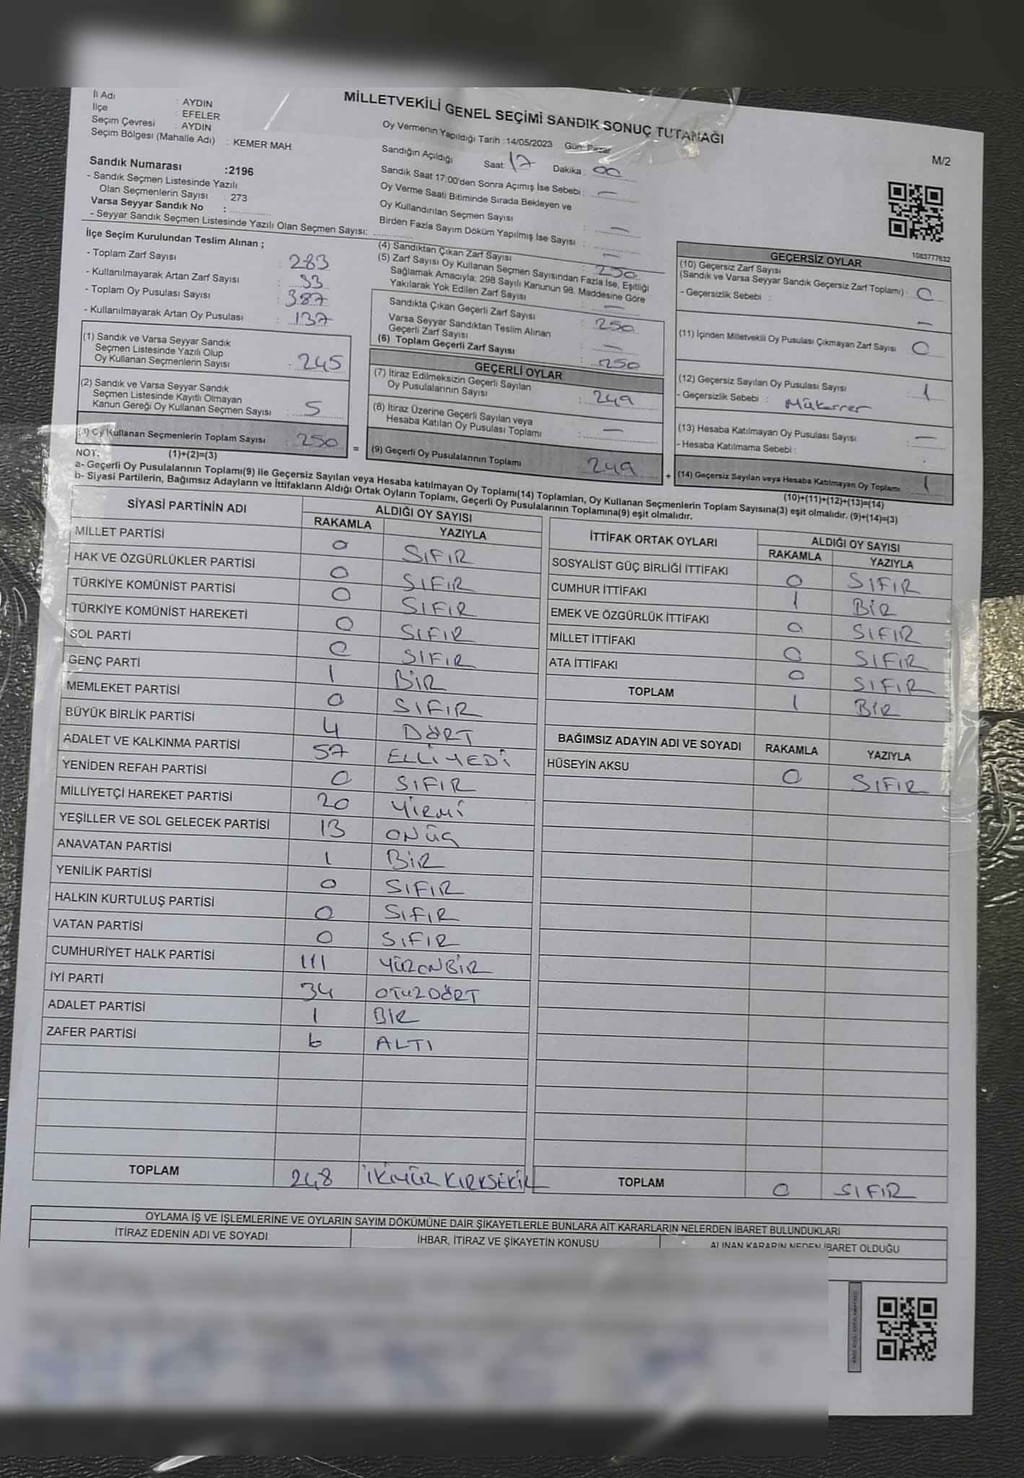 MİLLETVEKİLİ GENEL SEÇİMİ SANDIK SONUÇ TUTANAĞI
M/2
İl Adı : AYDIN
İlçe : EFELER
Seçim Çevresi : AYDIN
Seçim Bölgesi (Mahalle Adı) : KEMER MAH
Sandık Numarası :2196
- Sandık Seçmen Listesinde Yazılı
Olan Seçmenlerin Sayısı : 273
Varsa Seyyar Sandık No :
- Seyyar Sandık Seçmen Listesinde Yazılı Olan Seçmen Sayısı:
Oy Vermenin Yapıldığı Tarih :14/05/2023 Gün: Pazar
Sandığın Açıldığı Saat 17 Dakika : 00
Sandık Saat 17:00'den Sonra Açımış İse Sebebi : —
Oy Verme Saati Bitiminde Sırada Bekleyen ve
Oy Kullandırılan Seçmen Sayısı : —
Birden Fazla Sayım Döküm Yapılmış İse Sayısı : —
1083777632
İlçe Seçim Kurulundan Teslim Alınan ;
- Toplam Zarf Sayısı : 283
- Kullanılmayarak Artan Zarf Sayısı : 33
- Toplam Oy Pusulası Sayısı : 387
- Kullanılmayarak Artan Oy Pusulası : 137
(1) Sandık ve Varsa Seyyar Sandık
Seçmen Listesinde Yazılı Olup
Oy Kullanan Seçmenlerin Sayısı : 245
(2) Sandık ve Varsa Seyyar Sandık
Seçmen Listesinde Kayıtlı Olmayan
Kanun Gereği Oy Kullanan Seçmen Sayısı : 5
(3) Oy Kullanan Seçmenlerin Toplam Sayısı 250
(1)+(2)=(3)
(4) Sandıktan Çıkan Zarf Sayısı : 250
(5) Zarf Sayısı Oy Kullanan Seçmen Sayısından Fazla İse, Eşitliği
Sağlamak Amacıyla; 298 Sayılı Kanunun 98. Maddesine Göre
Yakılarak Yok Edilen Zarf Sayısı : —
Sandıkta Çıkan Geçerli Zarf Sayısı : 250
Varsa Seyyar Sandıktan Teslim Alınan
Geçerli Zarf Sayısı : —
(6) Toplam Geçerli Zarf Sayısı : 250
GEÇERLİ OYLAR
(7) İtiraz Edilmeksizin Geçerli Sayılan
Oy Pusulalarının Sayısı : 249
(8) İtiraz Üzerine Geçerli Sayılan veya
Hesaba Katılan Oy Pusulası Toplamı : —
= (9) Geçerli Oy Pusulalarının Toplamı 249
GEÇERSİZ OYLAR
(10) Geçersiz Zarf Sayısı
(Sandık ve Varsa Seyyar Sandık Geçersiz Zarf Toplamı) : 0
- Geçersizlik Sebebi : —
(11) İçinden Milletvekili Oy Pusulası Çıkmayan Zarf Sayısı 0
(12) Geçersiz Sayılan Oy Pusulası Sayısı : 1
- Geçersizlik Sebebi : Mükerrer
(13) Hesaba Katılmayan Oy Pusulası Sayısı : —
- Hesaba Katılmama Sebebi :
+ (14) Geçersiz Sayılan veya Hesaba Katılmayan Oy Toplamı 1
(10)+(11)+(12)+(13)=(14)
NOT:
a- Geçerli Oy Pusulalarının Toplamı(9) ile Geçersiz Sayılan veya Hesaba katılmayan Oy Toplamı(14) Toplamları, Oy Kullanan Seçmenlerin Toplam Sayısına(3) eşit olmalıdır. (9)+(14)=(3)
b- Siyasi Partilerin, Bağımsız Adayların ve İttifakların Aldığı Ortak Oyların Toplamı, Geçerli Oy Pusulalarının Toplamına(9) eşit olmalıdır.
SİYASİ PARTİNİN ADI ALDIĞI OY SAYISI
RAKAMLA YAZIYLA
MİLLET PARTİSİ 0 SIFIR
HAK VE ÖZGÜRLÜKLER PARTİSİ 0 SIFIR
TÜRKİYE KOMÜNİST PARTİSİ 0 SIFIR
TÜRKİYE KOMÜNİST HAREKETİ 0 SIFIR
SOL PARTİ 0 SIFIR
GENÇ PARTİ 1 BİR
MEMLEKET PARTİSİ 0 SIFIR
BÜYÜK BİRLİK PARTİSİ 4 DÖRT
ADALET VE KALKINMA PARTİSİ 57 ELLİYEDİ
YENİDEN REFAH PARTİSİ 0 SIFIR
MİLLİYETÇİ HAREKET PARTİSİ 20 YİRMİ
YEŞİLLER VE SOL GELECEK PARTİSİ 13 ONÜÇ
ANAVATAN PARTİSİ 1 BİR
YENİLİK PARTİSİ 0 SIFIR
HALKIN KURTULUŞ PARTİSİ 0 SIFIR
VATAN PARTİSİ 0 SIFIR
CUMHURİYET HALK PARTİSİ 111 YÜZONBİR
İYİ PARTİ 34 OTUZDÖRT
ADALET PARTİSİ 1 BİR
ZAFER PARTİSİ 6 ALTI
TOPLAM 248 İKİYÜZ KIRKSEKİZ
İTTİFAK ORTAK OYLARI ALDIĞI OY SAYISI
RAKAMLA YAZIYLA
SOSYALİST GÜÇ BİRLİĞİ İTTİFAKI 0 SIFIR
CUMHUR İTTİFAKI 1 BİR
EMEK VE ÖZGÜRLÜK İTTİFAKI 0 SIFIR
MİLLET İTTİFAKI 0 SIFIR
ATA İTTİFAKI 0 SIFIR
TOPLAM 1 BİR
BAĞIMSIZ ADAYIN ADI VE SOYADI RAKAMLA YAZIYLA
HÜSEYİN AKSU 0 SIFIR
TOPLAM 0 SIFIR
OYLAMA İŞ VE İŞLEMLERİNE VE OYLARIN SAYIM DÖKÜMÜNE DAİR ŞİKAYETLERLE BUNLARA AİT KARARLARIN NELERDEN İBARET BULUNDUKLARI
İTİRAZ EDENİN ADI VE SOYADI İHBAR, İTİRAZ VE ŞİKAYETİN KONUSU ALINAN KARARIN NEDEN İBARET OLDUĞU